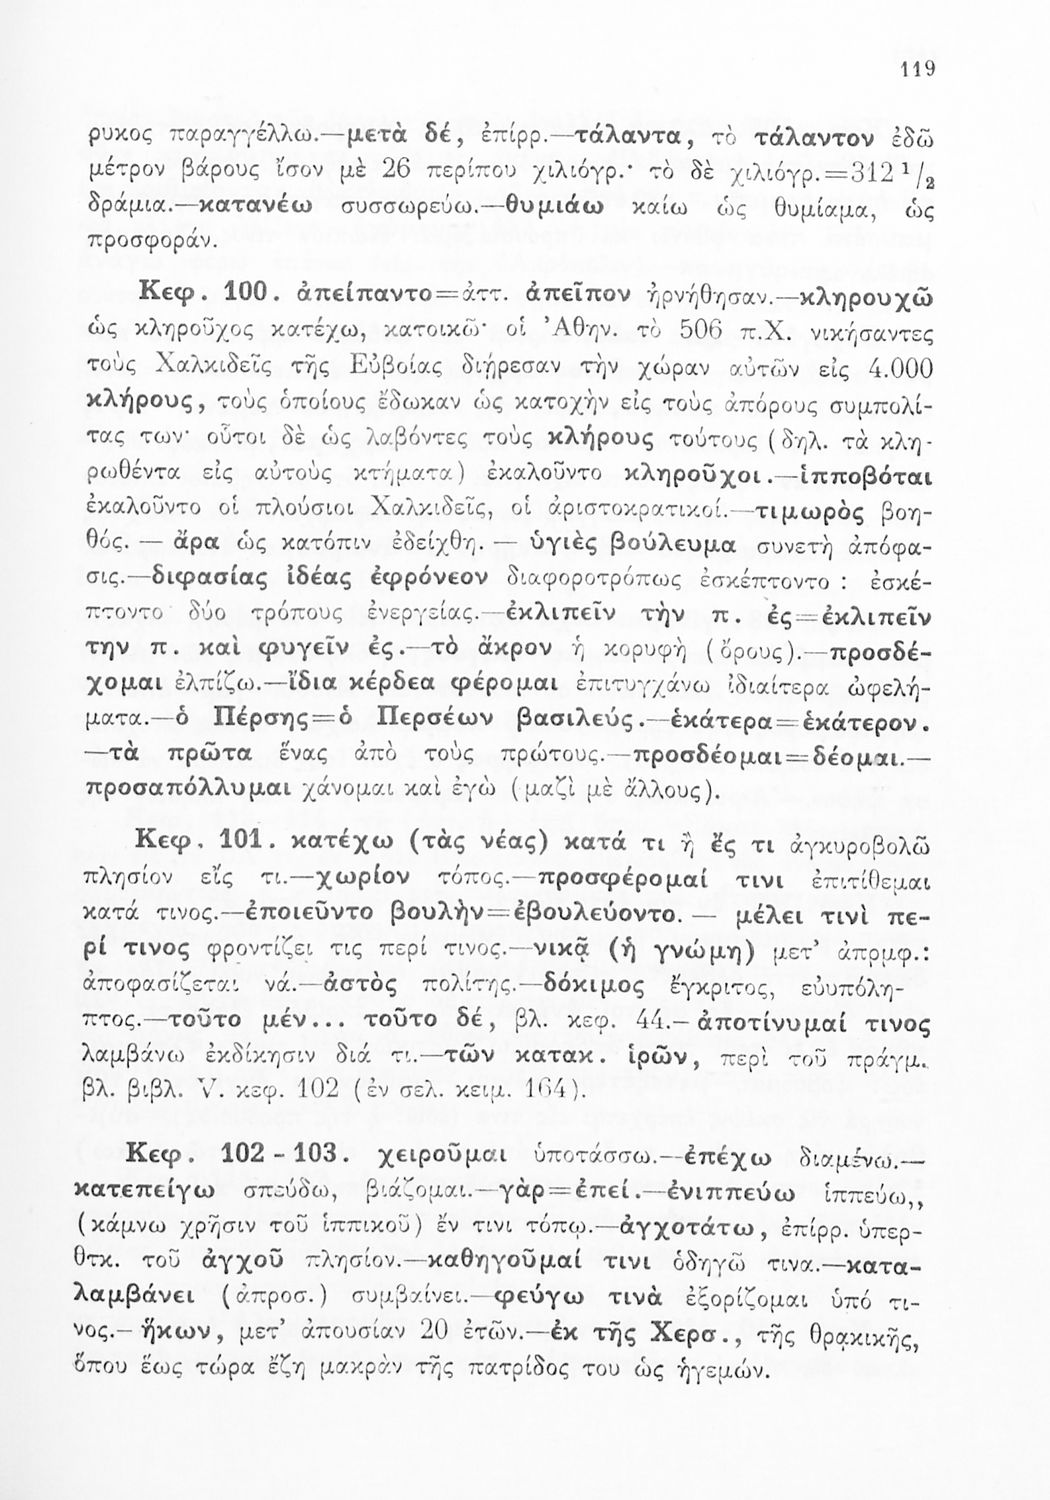 119
ρυκος παραγγέλλω.—μετὰ δέ, ἐπίρρ.—τάλαντα, τὸ τάλαντον ἐδῶ
μέτρον βάρους ἴσον μὲ 26 περίπου χιλιόγρ.· τὸ δὲ χιλιόγρ.=312 1/2
δράμια.—κατανέω συσσωρεύω.—θυμιάω καίω ὡς θυμίαμα, ὡς
προσφοράν.
Κεφ. 100. ἀπείπαντο=ἀττ. ἀπεῖπον ἠρνήθησαν.—κληρουχῶ
ὡς κληροῦχος κατέχω, κατοικῶ· οἱ Ἀθην. τὸ 506 π.Χ. νικήσαντες
τοὺς Χαλκιδεῖς τῆς Εὐβοίας διῄρεσαν τὴν χώραν αὐτῶν εἰς 4.000
κλήρους, τοὺς ὁποίους ἔδωκαν ὡς κατοχὴν εἰς τοὺς ἀπόρους συμπολί-
τας των· οὗτοι δὲ ὡς λαβόντες τοὺς κλήρους τούτους (δηλ. τὰ κλη-
ρωθέντα εἰς αὐτοὺς κτήματα) ἐκαλοῦντο κληροῦχοι.—ἱπποβόται
ἐκαλοῦντο οἱ πλούσιοι Χαλκιδεῖς, οἱ ἀριστοκρατικοί.—τιμωρὸς βοη-
θός. — ἄρα ὡς κατόπιν ἐδείχθη. — ὑγιὲς βούλευμα συνετὴ ἀπόφα-
σις.—διφασίας ἰδέας ἐφρόνεον διαφοροτρόπως ἐσκέπτοντο : ἐσκέ-
πτοντο δύο τρόπους ἐνεργείας.—ἐκλιπεῖν τὴν π. ἐς=ἐκλιπεῖν
την π. καὶ φυγεῖν ἐς.—τὸ ἄκρον ἡ κορυφὴ (ὄρους).—προσδέ-
χομαι ἐλπίζω.—ἴδια κέρδεα φέρομαι ἐπιτυγχάνω ἰδιαίτερα ὠφελή-
ματα.—ὁ Πέρσης=ὁ Περσέων βασιλεύς.—ἑκάτερα=ἑκάτερον.
—τὰ πρῶτα ἕνας ἀπὸ τοὺς πρώτους.—προσδέομαι=δέομαι.—
προσαπόλλυμαι χάνομαι καὶ ἐγὼ (μαζὶ μὲ ἄλλους).
Κεφ. 101. κατέχω (τὰς νέας) κατά τι ἢ ἔς τι ἀγκυροβολῶ
πλησίον εἴς τι.—χωρίον τόπος.—προσφέρομαί τινι ἐπιτίθεμαι
κατά τινος.—ἐποιεῦντο βουλὴν=ἐβουλεύοντο. — μέλει τινὶ πε-
ρί τινος φροντίζει τις περί τινος.—νικᾷ (ἡ γνώμη) μετ’ ἀπρμφ.:
ἀποφασίζεται νά.—ἀστὸς πολίτης.—δόκιμος ἔγκριτος, εὐυπόλη-
πτος.—τοῦτο μέν... τοῦτο δέ, βλ. κεφ. 44.—ἀποτίνυμαί τινος
λαμβάνω ἐκδίκησιν διά τι.—τῶν κατακ. ἱρῶν, περὶ τοῦ πράγμ.
βλ. βιβλ. V. κεφ. 102 (ἐν σελ. κειμ. 164).
Κεφ. 102 - 103. χειροῦμαι ὑποτάσσω.—ἐπέχω διαμένω.—
κατεπείγω σπεύδω, βιάζομαι.—γὰρ=ἐπεί.—ἐνιππεύω ἱππεύω,,
(κάμνω χρῆσιν τοῦ ἱππικοῦ) ἔν τινι τόπῳ.—ἀγχοτάτω, ἐπίρρ. ὑπερ-
θτκ. τοῦ ἀγχοῦ πλησίον.—καθηγοῦμαί τινι ὁδηγῶ τινα.—κατα-
λαμβάνει (ἀπροσ.) συμβαίνει.—φεύγω τινὰ ἐξορίζομαι ὑπό τι-
νος.—ἥκων, μετ’ ἀπουσίαν 20 ἐτῶν.—ἐκ τῆς Χερσ., τῆς θρᾳκικῆς,
ὅπου ἕως τώρα ἔζη μακρὰν τῆς πατρίδος του ὡς ἡγεμών.